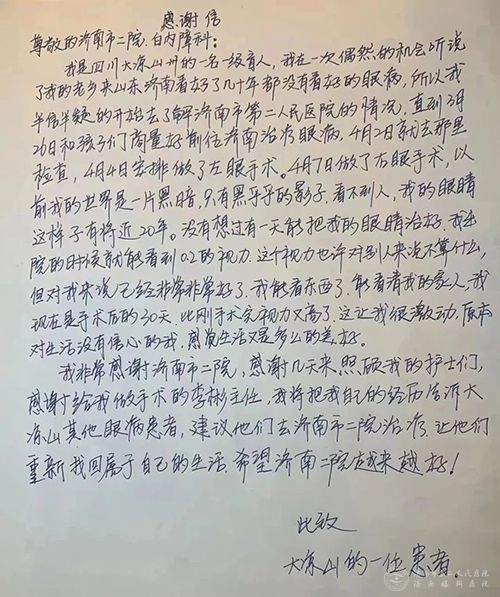 感谢信
尊敬的济南市二院.白内障科:
我是四川大凉山州的一名一级盲人,我在一次偶然的机会听说
了我的老乡来山东济南看好了几十年都没有看好的眼病,所以我
半信半疑的开始去了解济南市第二人民医院的情况,直到3月
26日和孩子们商量好前往济南治疗眼病.4月2日就去那里
检查,4月4日安排做了左眼手术.4月7日做了右眼手术,以
前我的世界是一片黑暗.只有黑乎乎的影子.看不到人,我的眼睛
这样子有将近20年。没有想过有一天能把我的眼睛治好.我出
院的时候就能看到0.2的视力.这个视力也许对别人来说不算什么,
但对我来说已经非常非常好了.我能看东西了.能看清我的家人,我
现在是手术后的30天.比刚手术完视力又高了.这让我很激动.原本
对生活没有信心的我.感觉生活又是多么的美好.
我非常感谢济南市二院,感谢几天来.照顾我的护士们,
感谢给我做手术的李彬主任,我将把我自己的经历告诉大
凉山其他眼病患者,建议他们去济南市二院治疗.让他们
重新找回属于自己的生活.希望济南二院越来越好!
此致
大凉山的一位患者.